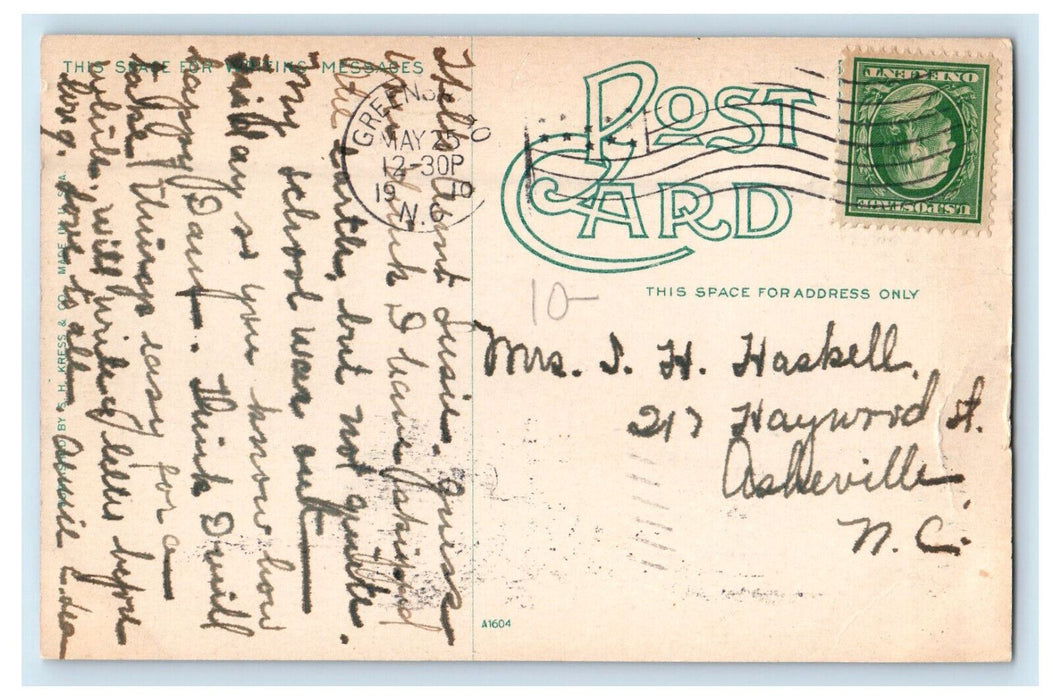 THIS SPACE FOR WRITING MESSAGES
POST
CARD
GREENSBORO
MAY 25
12-30P
1910
N.C.
U.S. POSTAGE
ONE CENT
THIS SPACE FOR ADDRESS ONLY
10-
Mrs. J. H. Haskell.
217 Haywood St.
Asheville
N. C.
A1604
Hello Aunt Susie. Guess
you think I have passed
the earth, but not quite.
My school was out
Friday & you know how
happy I am. Think I will
take things easy for a
while. will write letter before
long. love to all.
PUBLISHED BY S. H. KRESS & CO. MADE IN U.S.A.